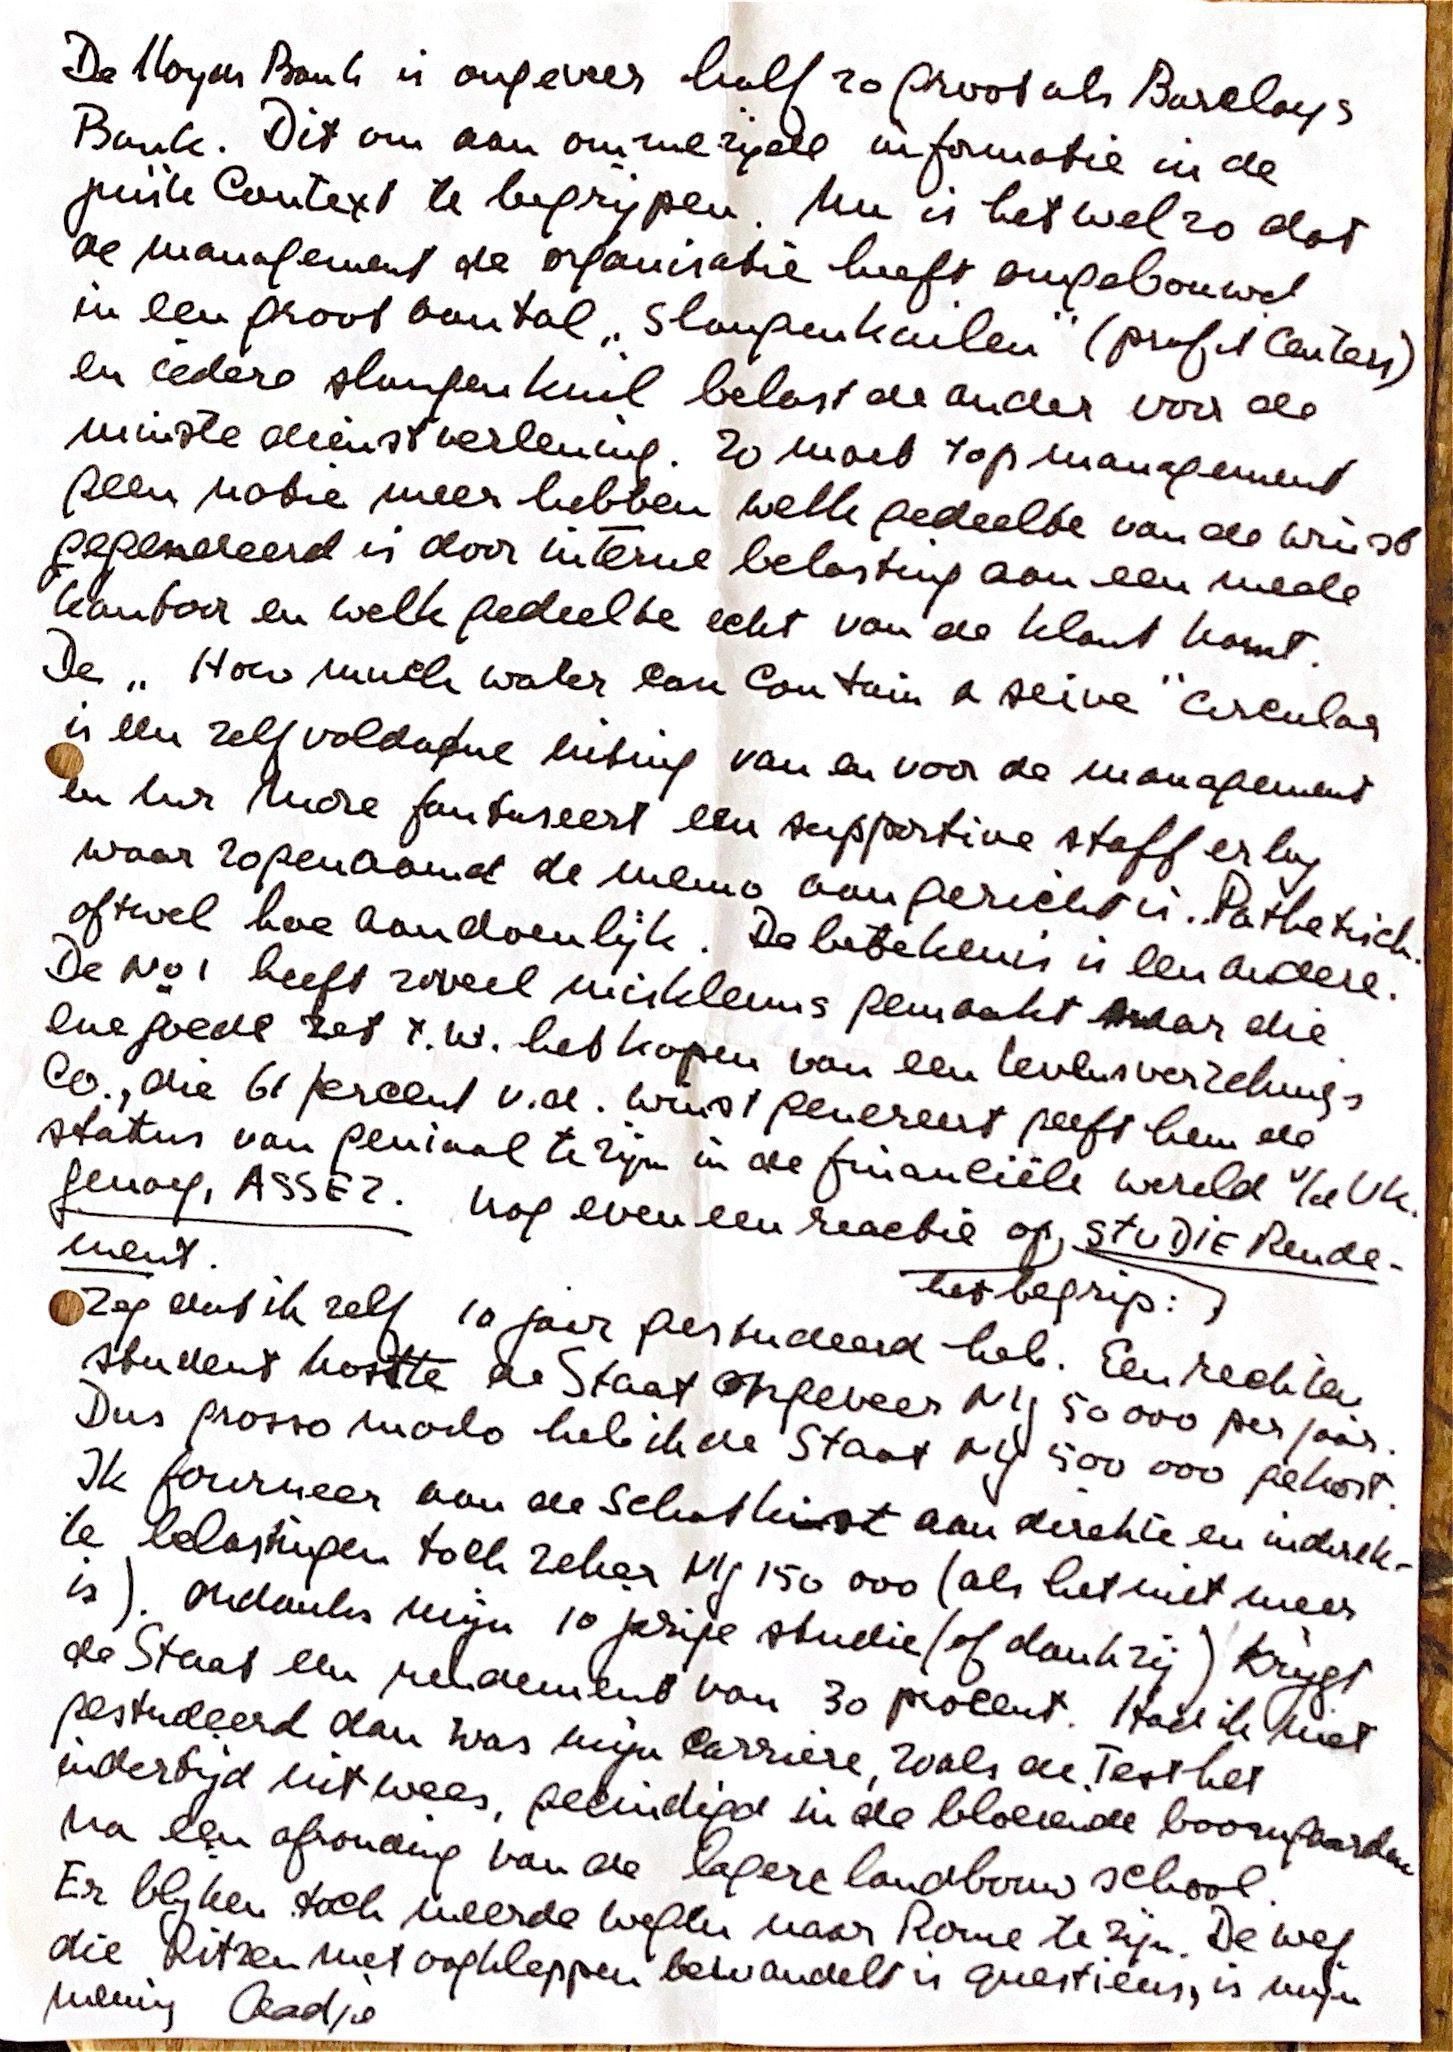 De Lloyds Bank is ongeveer half zo groot als Barclays
Bank. Dit om aan ommezijde informatie in de
juiste Context te begrijpen. Nu is het wel zo dat
de management de organisatie heeft omgebouwd
in een groot aantal „Slangenkuilen" (profit Centers)
en iedere slangenkuil belast de ander voor de
minste dienstverlening. Zo moet top management
geen notie meer hebben welk gedeelte van de winst
gegenereerd is door interne belasting aan een mede
kantoor en welk gedeelte echt van de klant komt.
De „How much water can Contain a seive" circulaar
is een zelfvoldane uiting van en voor de management
en hr More fantaseert een supportive staff erbij
waar zogenaamd de memo aan gericht is. Pathetisch.
oftwel hoe aandoenlijk. De betekenis is een andere.
De No 1 heeft zoveel miskleuns gemaakt maar die
ene goede zet t.w. het kopen van een levensverzekerings
Co., die 61 percent v.d. winst genereert geeft hem de
status van geniaal te zijn in de financiële wereld v/d UK.
Genoeg, ASSEZ. Nog even een reactie op STUDIE Rende-
ment.
het begrip:
Zeg dat ik zelf 10 jaar gestudeerd heb. Een rechten
student kostte de Staat ongeveer Nlg 50 000 per jaar.
Dus grosso modo heb ik de Staat Nlg 500 000 gekost.
Ik fourneer aan de Schatkist aan direkte en indirek-
te belastingen toch zeker Nlg 150 000 (als het niet meer
is). Ondanks mijn 10 jarige studie (of dankzij) krijgt
de Staat een rendement van 30 procent. Had ik niet
gestudeerd dan was mijn carriere, zoals de Test het
indertijd uitwees, geeindigd in de bloeiende boomgaarden
na een afronding van de lagere landbouw school.
Er blyken toch meerde wegen naar Rome te zijn. De weg
die Ritzen met oogkleppen bewandelt is questieus, is mijn
mening Aadje